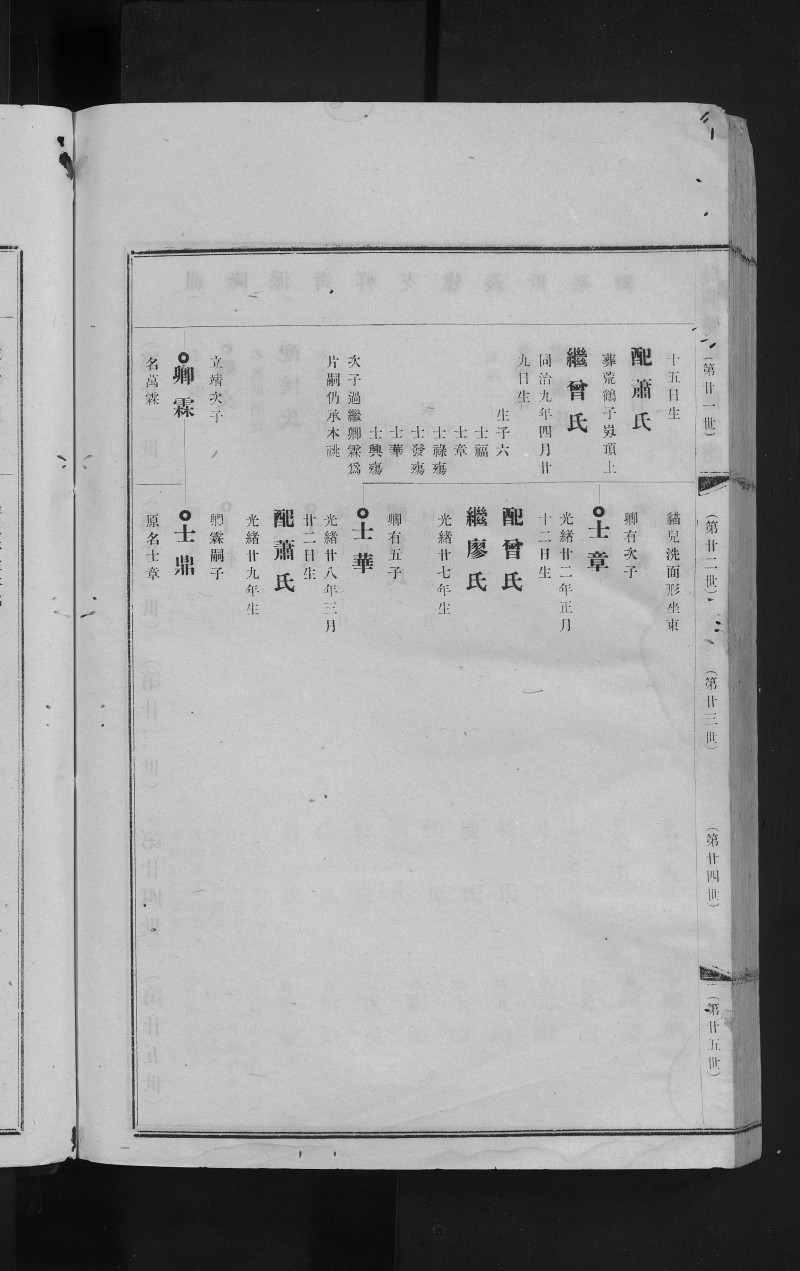 (第廿一世)
十五日生
配蕭氏
葬荒鶴子嶺頂上
繼曾氏
同治九年四月廿
九日生
生子六
士福
士章
士祿殤
士發殤
士華
士興殤
次子過繼卿霖爲
片嗣仍承本祧
立靖次子
卿霖
名萬霖
(第廿二世)
貓兒洗面形坐東
卿有次子
士章
光緒廿二年正月
十二日生
配曾氏
繼廖氏
光緒廿七年生
卿有五子
士華
光緒廿八年三月
廿二日生
配蕭氏
光緒廿九年生
卿霖嗣子
士鼎
原名士章
(第廿三世)
(第廿四世)
(第廿五世)